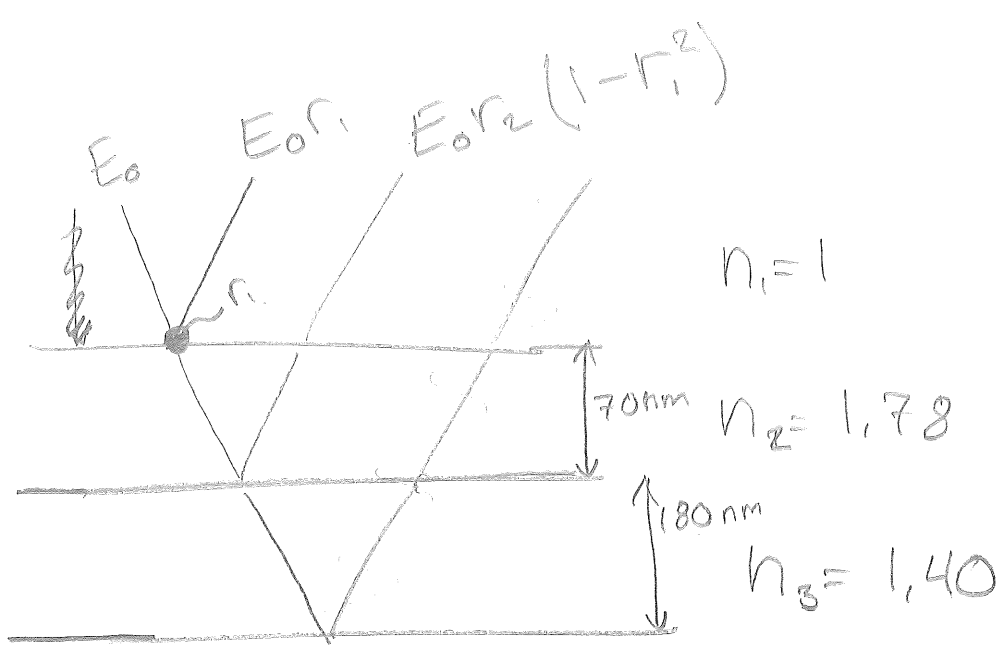 E₀
E₀r₁
E₀r₂(1-r₁²)
r₁
n₁=1
70nm
n₂=1,78
180nm
n₃=1,40